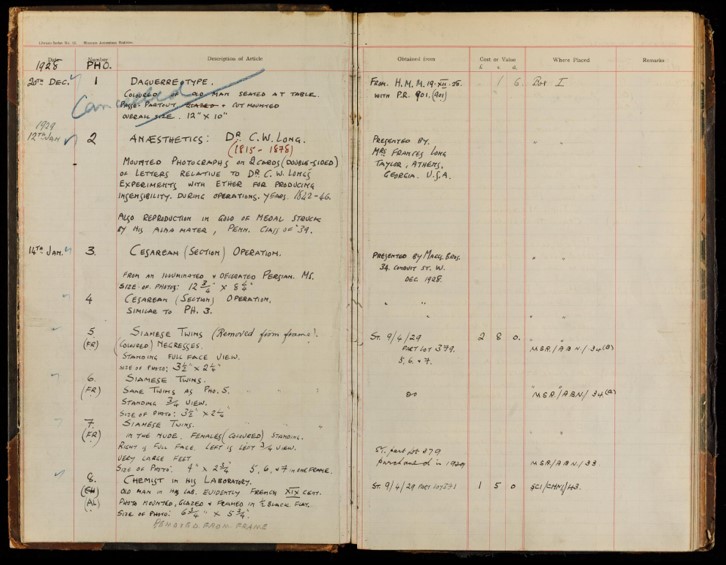 Date Number Description of Article Obtained from Cost or Value Where Placed Remarks
£ s. d.
1928 PHO.
20TH DEC. 1 DAGUERREOTYPE. FROM. H. M. M. 19. XII. 28. 1 6 Box I
COLOURED OF OLD MAN SEATED AT TABLE. WITH P.R. 901. (901)
Cancelled
PASSE-PARTOUT GLAZED + NOT MOUNTED
OVERALL SIZE. 12" X 10"
1929
12TH JAN 2 ANÆSTHETICS: DR. C. W. LONG. PRESENTED BY.
(1815 - 1878) MRS FRANCES LONG
MOUNTED PHOTOGRAPHS ON CARDS (DOUBLE-SIDED) TAYLOR, ATHENS,
OF LETTERS RELATIVE TO DR. C. W. LONG'S GEORGIA. U.S.A.
EXPERIMENTS WITH ETHER FOR PRODUCING
INSENSIBILITY. DURING OPERATIONS. YEARS. 1842-46.
ALSO REPRODUCTION IN GOLD OF MEDAL STRUCK
BY HIS ALMA MATER, PENN. CLASS OF '39.
14TH JAN. 3. CESAREAN (SECTION) OPERATION. PRESENTED BY MAGG. BROS.
34. CONDUIT ST. W.
FROM AN ILLUMINATED + DECORATED PERSIAN. MS. DEC 1928.
SIZE. OF. PHOTO: 12 3/4" X 8 1/2"
4 CESAREAN (SECTION) OPERATION, " "
SIMILAR TO PH. 3.
5 SIAMESE TWINS (Removed from frame). ST. 9/4/29 2 8 0.
(FR) (COLOURED) NEGRESSES. PART LOT 379. M.S.R./A.B.N./34(B)
STANDING FULL FACE VIEW. 5, 6. + 7.
SIZE OF PHOTO: 3 1/2" X 2 1/2"
6. SIAMESE TWINS.
(FR) SAME TWINS AS PHO. 5. DO M.S.R./A.B.N./34(A)
STANDING 3/4 VIEW.
SIZE OF PHOTO: 3 1/2" X 2 1/2
7. SIAMESE TWINS.
(FR) IN THE NUDE. FEMALES (COLOURED) STANDING.
RIGHT IS FULL FACE. LEFT IS LEFT 3/4 VIEW. ST. part lot 379
VERY LARGE FEET
SIZE OF PHOTO: 4" X 2 3/4" 5, 6, + 7 IN ONE FRAME. M.S.R./A.B.N./33
8. CHEMIST IN HIS LABORATORY.
OLD MAN IN HIS LAB. EVIDENTLY FRENCH XIX CENT. ST. 9/4/29 PART LOT 1 5 0 SCI/CHM/43.
(AL) PHOTO MOUNTED, GLAZED + FRAMED IN 1/2 BLACK FLAT.
SIZE OF PHOTO: 6 3/4" X 5 3/4"
REMOVED FROM FRAME